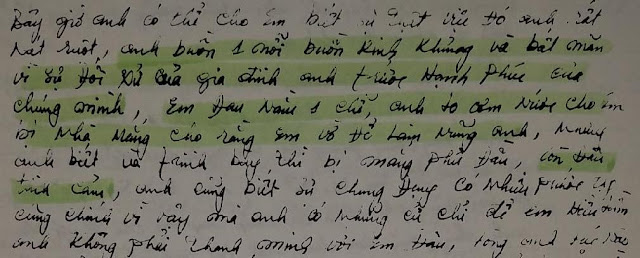 Bây giờ anh có thể cho em biết sự thật việc đó anh rất
nát ruột, anh buồn 1 nỗi buồn kinh khủng và bất mãn
vì sự đối xử của gia đình anh trước hạnh phúc của
chúng mình, em đau nằm 1 chỗ, anh lo cơm nước cho em
bị nhà mắng cho rằng em về để làm nũng anh, nhưng
anh biết và trình bày thì bị mắng phủ đầu, còn đâu
tình cảm, anh cũng biết sự chung đụng có nhiều
cũng chính vì vậy mà anh có những cử chỉ để em
anh không phải thanh minh với em đâu, lòng anh